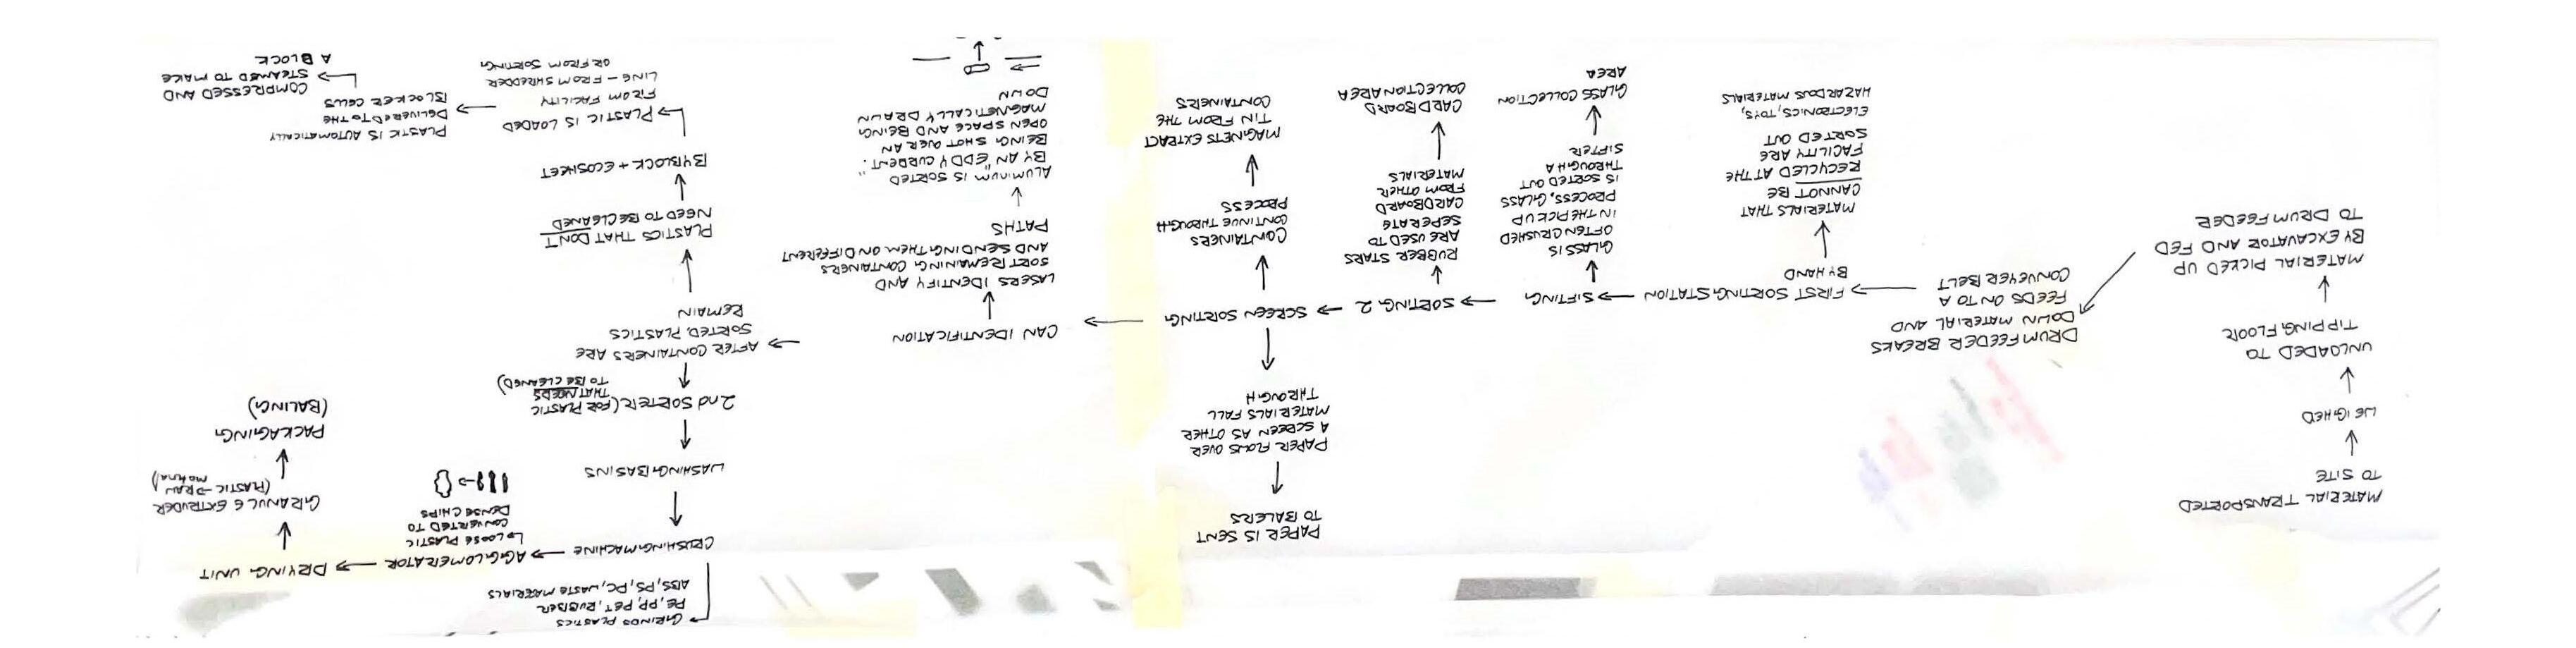 MATERIAL TRANSPORTED
TO SITE
WEIGHED
UNLOADED TO
TIPPING FLOOR
MATERIAL PICKED UP
BY EXCAVATOR AND FED
TO DRUM FEEDER
DRUM FEEDER BREAKS
DOWN MATERIAL AND
FEEDS ON TO A
CONVEYER BELT
FIRST SORTING STATION
BY HAND
MATERIALS THAT
CANNOT BE
RECYCLED AT THE
FACILITY ARE
SORTED OUT
ELECTRONICS, TOYS,
HAZARDOUS MATERIALS
SIFTING
GLASS IS
OFTEN CRUSHED
IN THE PICK UP
PROCESS, GLASS
IS SORTED OUT
THROUGH A
SIFTER
GLASS COLLECTION
AREA
SORTING 2
RUBBER STARS
ARE USED TO
SEPERATE
CARDBOARD
FROM OTHER
MATERIALS
CARDBOARD
COLLECTION AREA
SCREEN SORTING
PAPER IS SENT
TO BALERS
PAPER FLOWS OVER
A SCREEN AS OTHER
MATERIALS FALL
THROUGH
CONTAINERS
CONTINUE THROUGH
PROCESS
MAGNETS EXTRACT
TIN FROM THE
CONTAINERS
CAN IDENTIFICATION
LASERS IDENTIFY AND
SORT REMAINING CONTAINERS
AND SENDING THEM ON DIFFERENT
PATHS
ALUMINUM IS SORTED
BY AN "EDDY CURRENT."
BEING SHOT OVER AN
OPEN SPACE AND BEING
MAGNETICALLY DRAWN
DOWN
AFTER CONTAINERS ARE
SORTED, PLASTICS
REMAIN
2nd SORTER (FOR PLASTIC
THAT NEEDS
TO BE CLEANED)
WASHING BASINS
CRUSHING MACHINE
GRINDS PLASTICS
PE, PP, PET, RUBBER
ABS, PS, PC, WASTE MATERIALS
AGGLOMERATOR
LOOSE PLASTIC
CONVERTED TO
DENSE CHIPS
DRYING UNIT
GRANULE EXTRUDER
(PLASTIC → RAW
material)
PACKAGING
(BALING)
PLASTICS THAT DON'T
NEED TO BE CLEANED
BYBLOCK + ECOSHEET
PLASTIC IS LOADED
FROM FACILITY
LINE - FROM SHREDDER
OR FROM SORTING
PLASTIC IS AUTOMATICALLY
DELIVERED TO THE
BLOCKER CELLS
COMPRESSED AND
STEAMED TO MAKE
A BLOCK